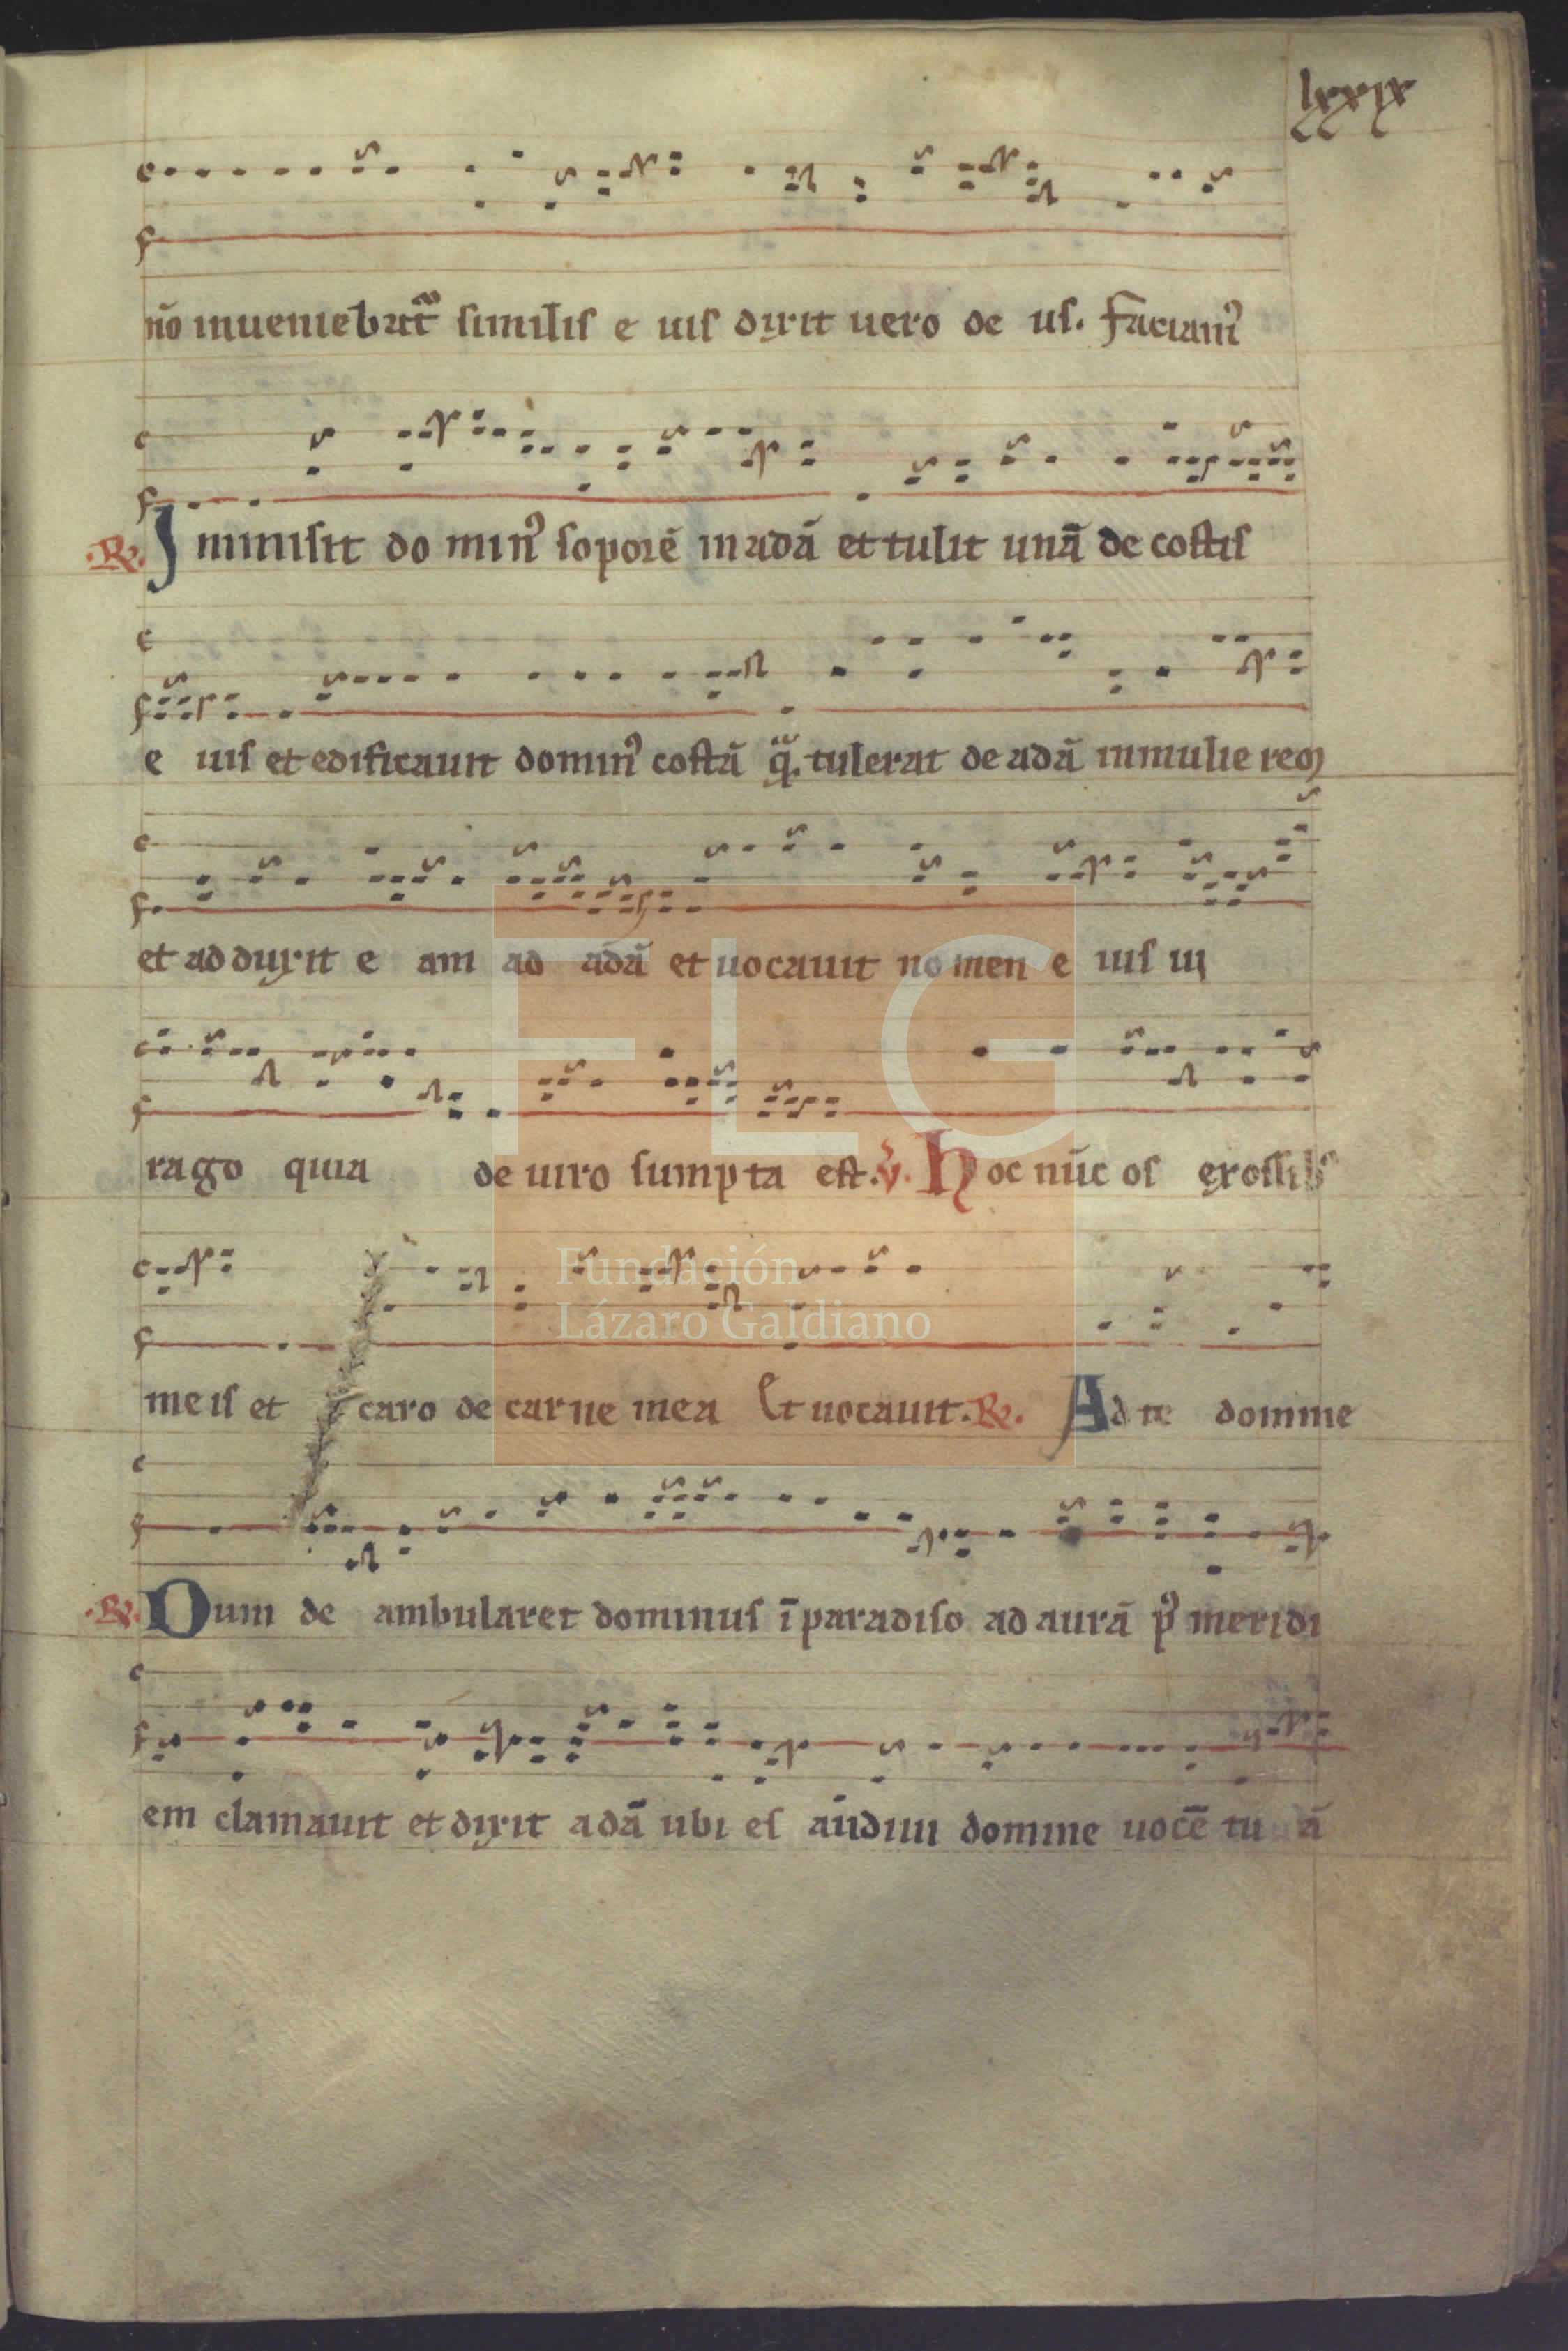 lxxix
nō inueniebat᷑ similis e uis dixit uero de us. faciam⁹
.R. Inmisit do min⁹ soporē in adā et tulit unā de costis
e uis et edificauit domin⁹ costā q̄. tulerat de adā in mulie rem
et ad duxit e am ad adā et uocauit no men e uis ui
rago quia de uiro sumpta est. V. Hoc nūc os exossib⁹
me is et caro de carne mea Et uocauit. R. Ad te domine
.R. Dum de ambularet dominus ī paradiso ad aurā p⁹ meridi
em clamauit et dixit adā ubi es audiui domine uocē tu ā
FLG
Fundación
Lázaro Galdiano